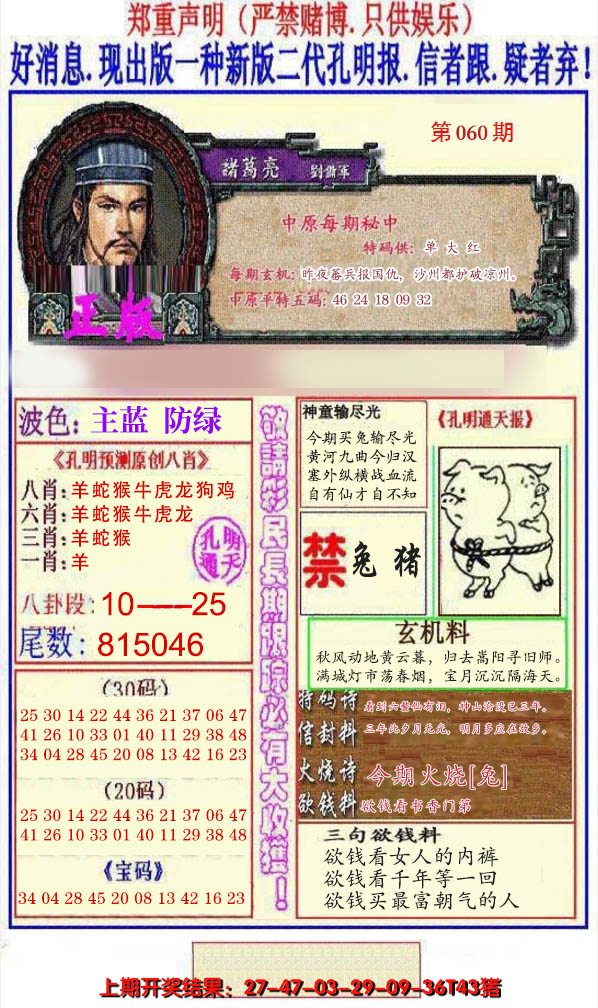 郑重声明（严禁赌博.只供娱乐）
好消息.现出版一种新版二代孔明报.信者跟.疑者弃！
第060期
諸葛亮 劉備軍
中原每期秘中
特码供：单大红
每期玄机：昨夜蕃兵报国仇，沙州都护破凉州。
中原平特五码：46 24 18 09 32
正版
波色：主蓝 防绿
《孔明预测原创八肖》
八肖：羊蛇猴牛虎龙狗鸡
六肖：羊蛇猴牛虎龙
三肖：羊蛇猴
一肖：羊
孔明
通天
八卦段：10——25
尾数：815046
（30码）
25 30 14 22 44 36 21 37 06 47
41 26 10 33 01 40 11 29 38 48
34 04 28 45 20 08 13 42 16 23
（20码）
25 30 14 22 44 36 21 37 06 47
41 26 10 33 01 40 11 29 38 48
《宝码》
34 04 28 45 20 08 13 42 16 23
敬請彩民長期跟踪必有大收獲！
神童输尽光
今期买兔输尽光
黄河九曲今归汉
塞外纵横战血流
自有仙才自不知
《孔明通天报》
禁 兔 猪
玄机料
秋风动地黄云暮，归去嵩阳寻旧师。
满城灯市荡春烟，宝月沉沉隔海天。
特码诗 看到六鳌仙有泪，神山沦没已三年。
信封料 三年此夕月无光，明月多应在故乡。
火烧诗 今期火烧[兔]
欲钱料 欲钱看书香门第
三句欲钱料
欲钱看女人的内裤
欲钱看千年等一回
欲钱买最富朝气的人
上期开奖结果：27-47-03-29-09-36T43猪